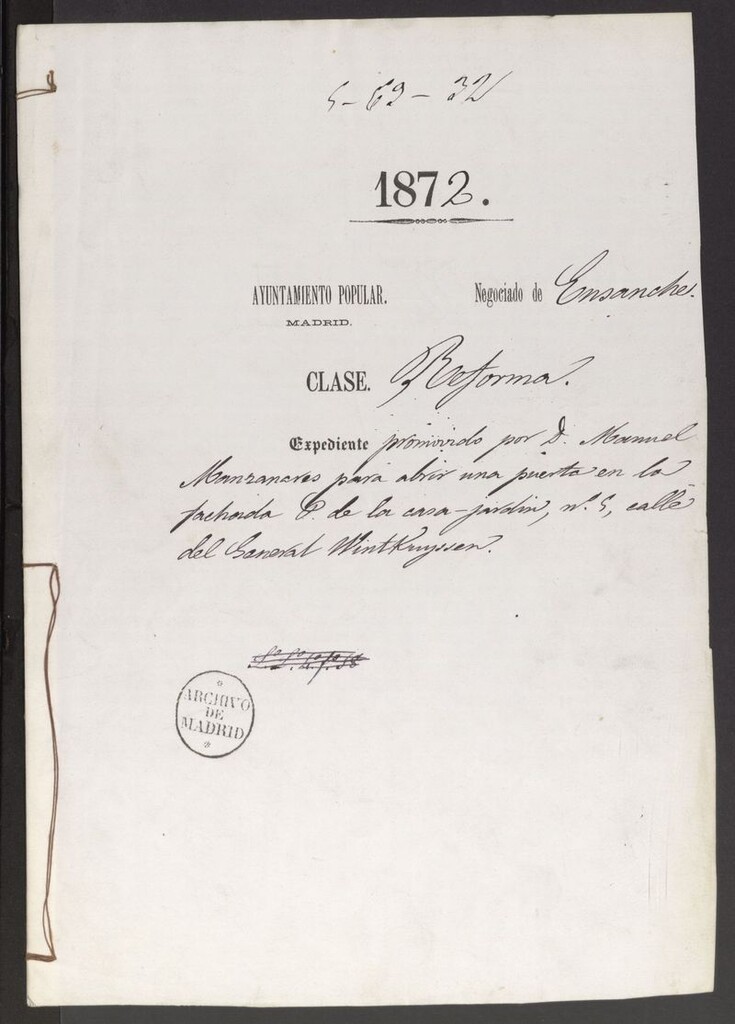 5-69-32
1872.
AYUNTAMIENTO POPULAR.
MADRID.
Negociado de Ensanche.
CLASE. Reforma.
Expediente promovido por D. Manuel
Manzanares para abrir una puerta en la
fachada P. de la casa-jardin, nº. 5, calle
del General WintKuyssen.
ARCHIVO
DE
MADRID